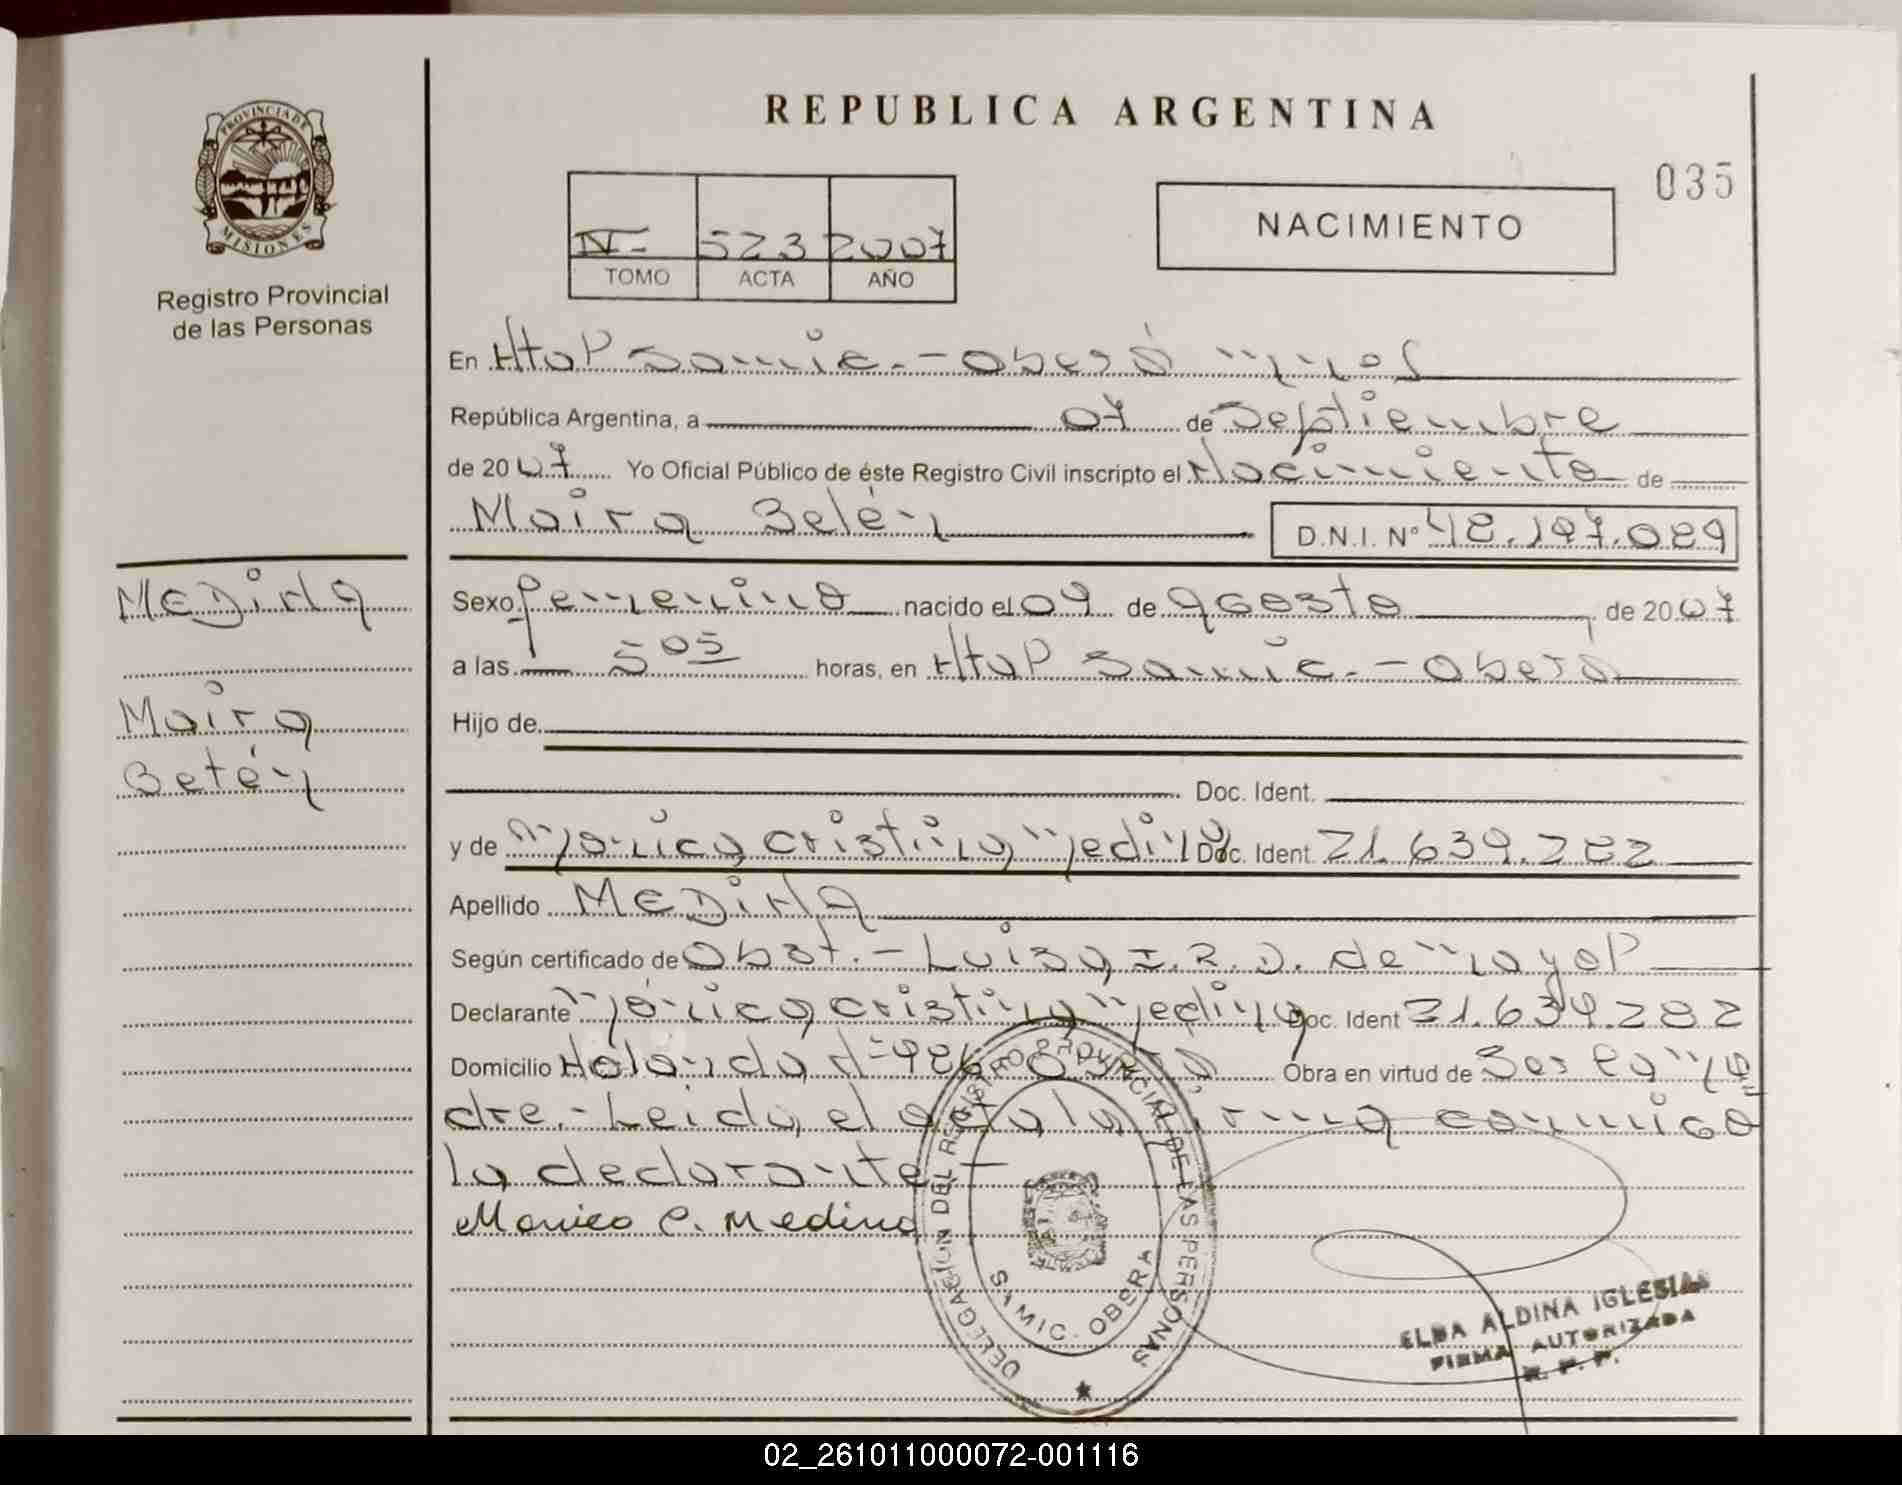 REPUBLICA ARGENTINA
PROVINCIA DE MISIONES
Registro Provincial
de las Personas
035
IV - 523 2007
TOMO ACTA AÑO
NACIMIENTO
En Htal Samic. - Oberá Mnes
República Argentina, a 07 de Septiembre
de 2007 Yo Oficial Público de éste Registro Civil inscripto el Nacimiento de
Maira Belén D.N.I. Nº 48.197.089
MEDiNA
Maira
Belén
Sexo Femenino nacido el 09 de agosto de 2007
a las 5 05 horas, en Htal Samic. - Oberá
Hijo de
Doc. Ident.
y de Mónica Cristina Medina Doc. Ident. 21.639.282
Apellido MEDiNA
Según certificado de Obst. - Luisa I. R. D. de Mayol
Declarante Mónica Cristina Medina Doc. Ident 21.639.282
Domicilio Holanda Nº 486 Oberá Obra en virtud de Ser la ma
dre. - Leida el acta la firma conmigo
la declarante -
Monica C. Medina
DELEGACION DEL REGISTRO PROVINCIAL DE LAS PERSONAS
SAMIC - OBERA
ELBA ALDINA IGLESIAS
FIRMA AUTORIZADA
R. P. P.
02_261011000072-001116